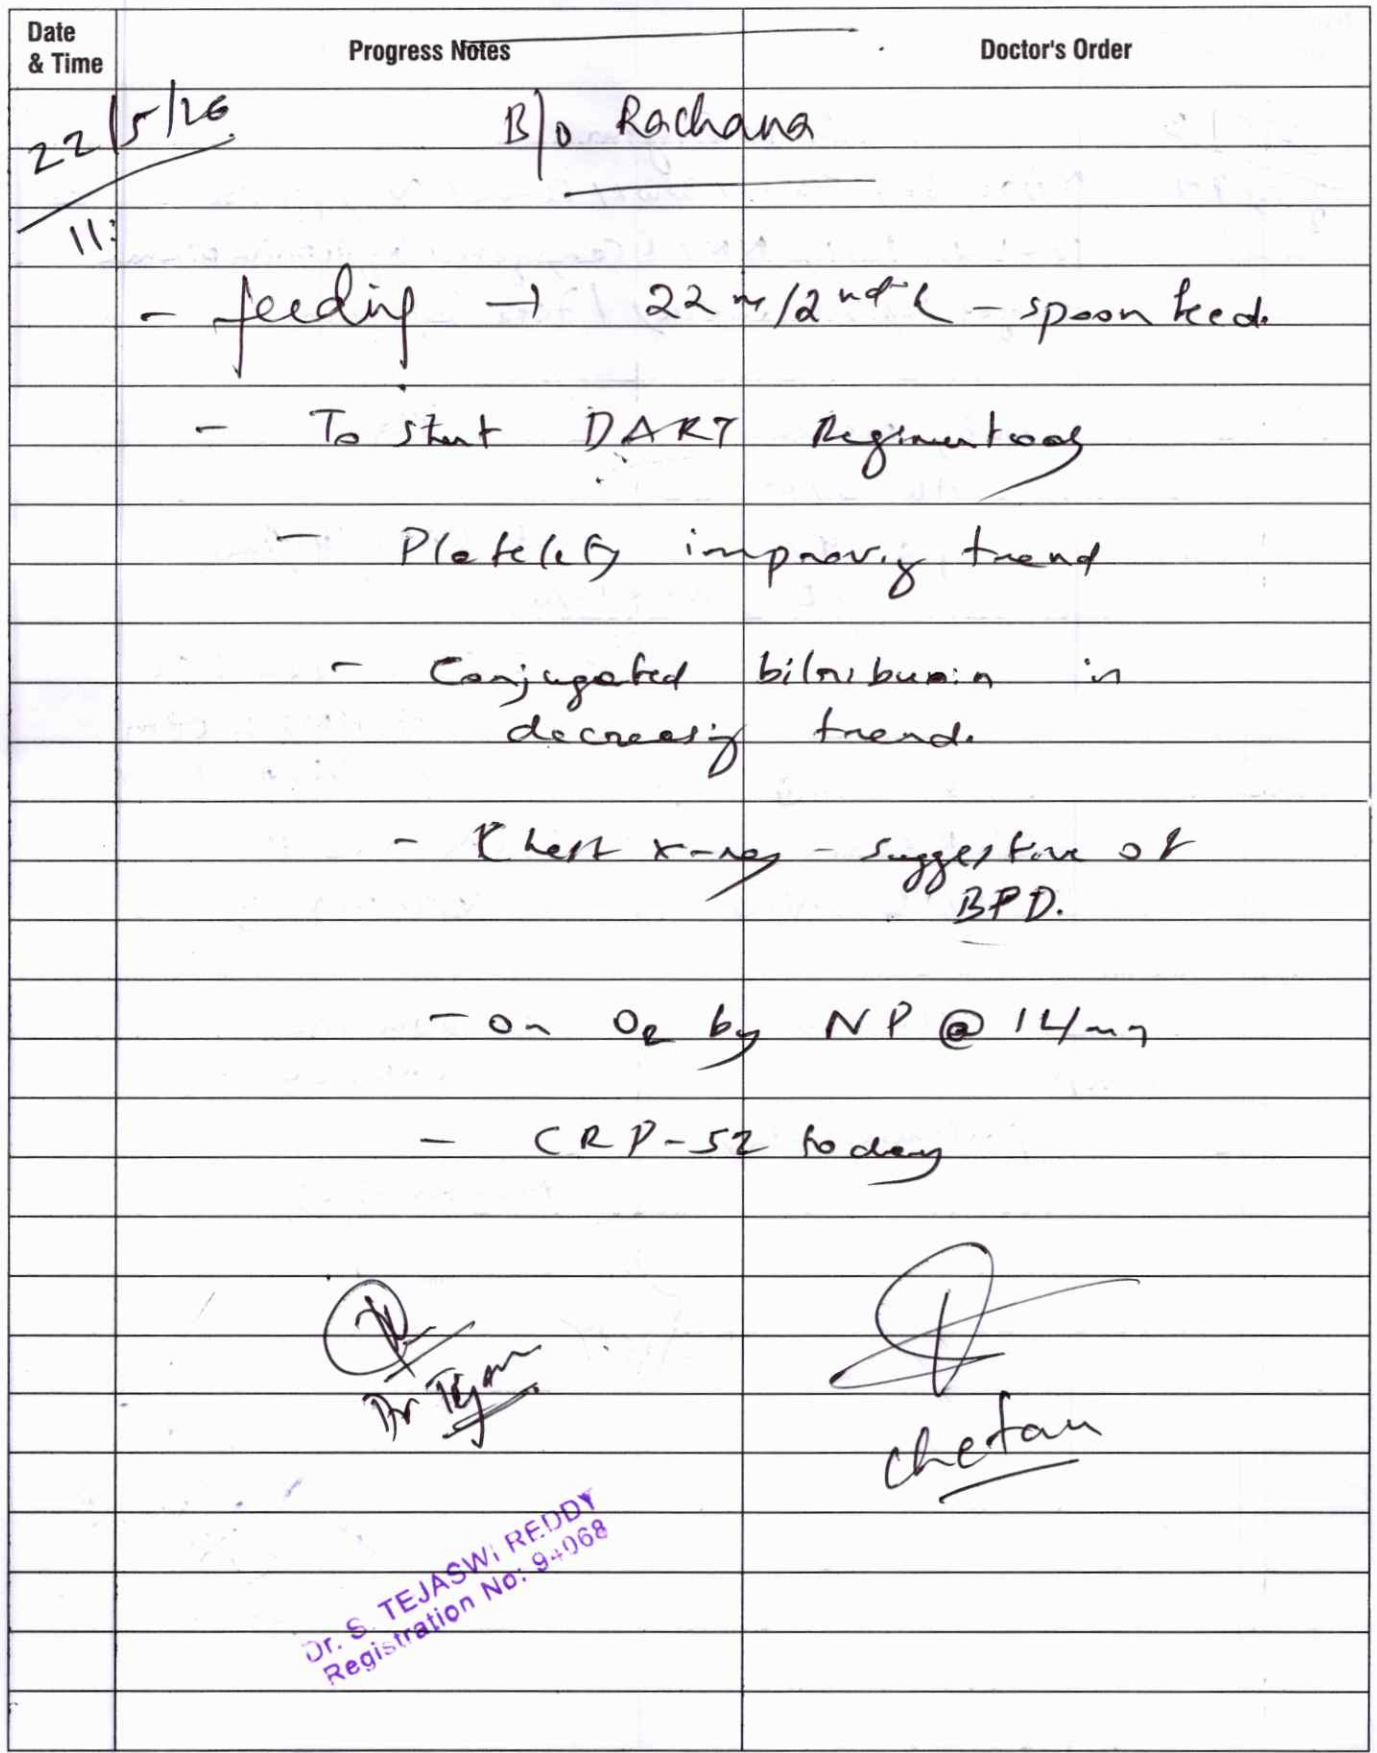 Date
& Time
Progress Notes
Doctor's Order
22/5/26
B/o Rachana
11:
- feeding → 22 ml/2nd - spoon feed.
- To start DART Regimen today
- Platelets improving trend
- Conjugated bilirubin in
decreasing trend.
- Chest x-ray - suggestive of
BPD.
- On O2 by NP @ 1L/min
- CRP-52 today
Dr
chetan
Dr. S. TEJASWI REDDY
Registration No: 94068